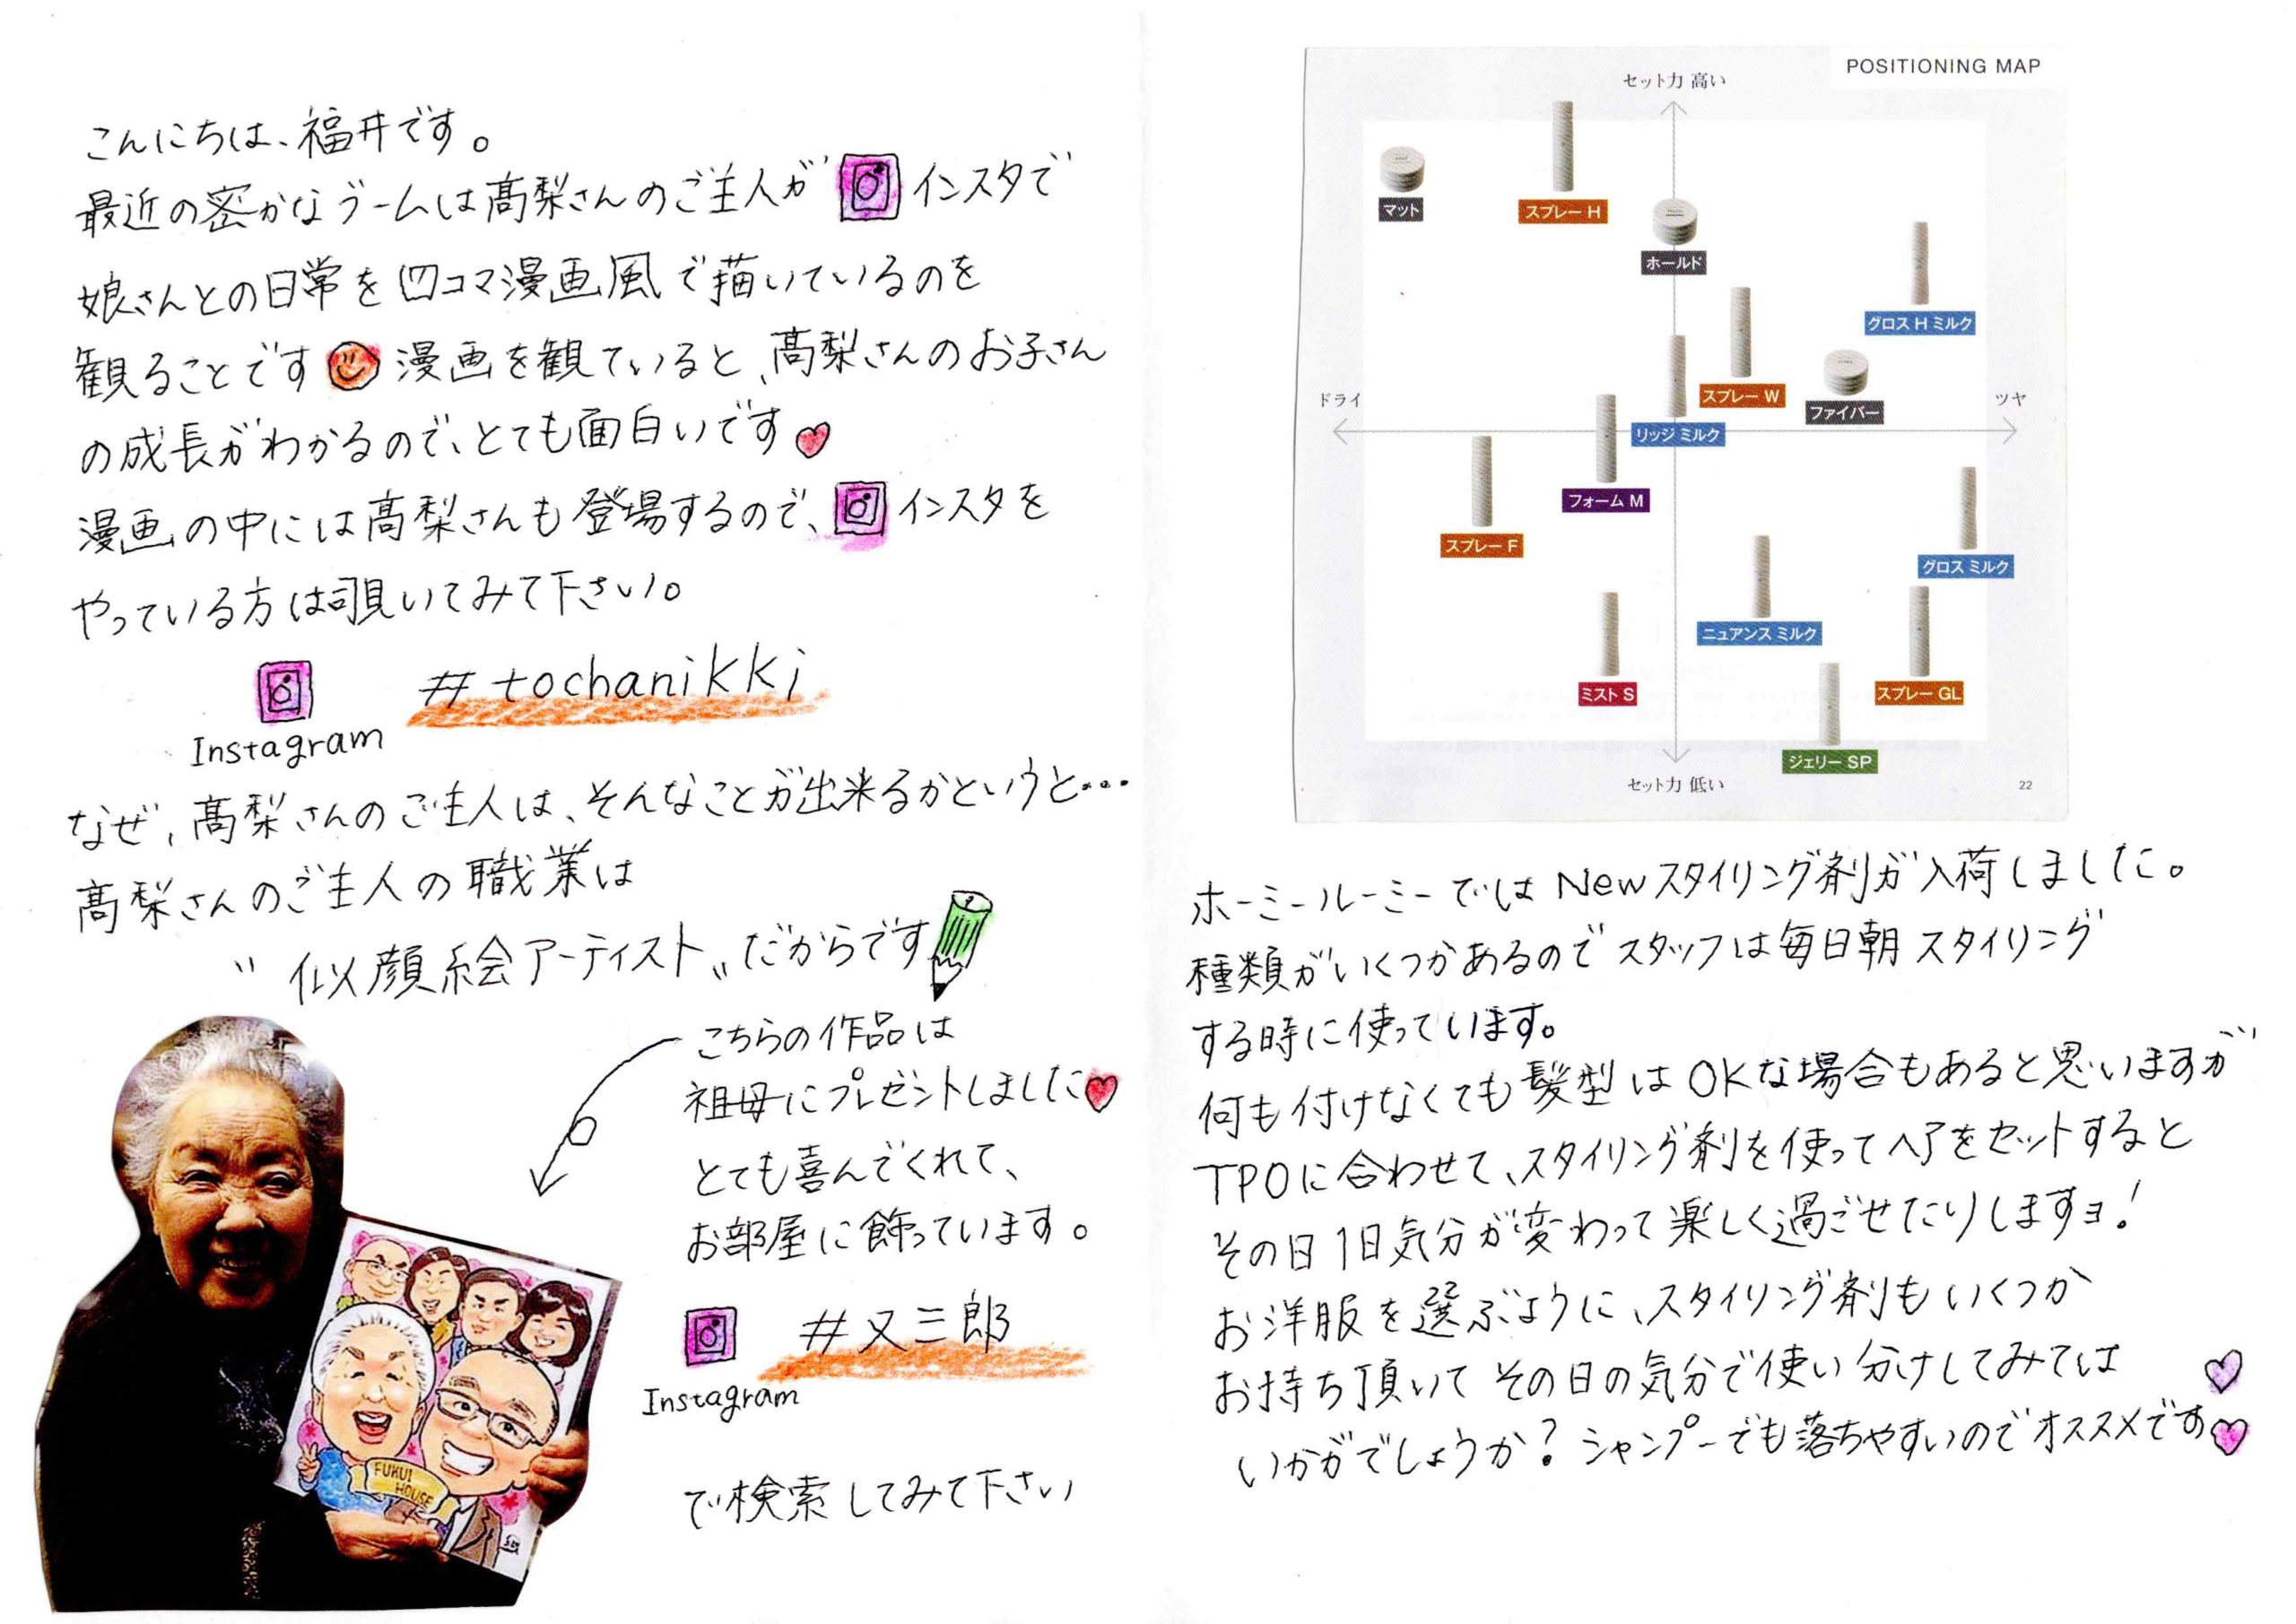 こんにちは、福井です。
最近の密かなブームは髙梨さんのご主人がインスタで
娘さんとの日常を四コマ漫画風で描いているのを
観ることです漫画を観ていると、髙梨さんのお子さん
の成長がわかるので、とても面白いです
漫画の中には髙梨さんも登場するので、インスタを
やっている方は覗いてみて下さい。
Instagram
#tochanikki
なぜ、髙梨さんのご主人は、そんなことが出来るかというと...
髙梨さんのご主人の職業は
〝似顔絵アーティスト〟だからです
こちらの作品は
祖母にプレゼントしました
とても喜んでくれて、
お部屋に飾っています。
Instagram
#又三郎
で検索してみて下さい
FUKUI
HOUSE
POSITIONING MAP
セット力 高い
マット
スプレー H
ホールド
グロス H ミルク
スプレー W
ファイバー
ドライ
ツヤ
リッジ ミルク
フォーム M
スプレー F
グロス ミルク
ニュアンス ミルク
ミスト S
スプレー GL
ジェリー SP
セット力 低い
22
ホーミールーミーではNewスタイリング剤が入荷しました。
種類がいくつかあるのでスタッフは毎日朝スタイリング
する時に使っています。
何も付けなくても髪型はOKな場合もあると思いますが
TPOに合わせて、スタイリング剤を使ってヘアをセットすると
その日1日気分が変わって楽しく過ごせたりしますョ!
お洋服を選ぶように、スタイリング剤もいくつか
お持ち頂いてその日の気分で使い分けしてみては
いかがでしょうか?シャンプーでも落ちやすいのでオススメです